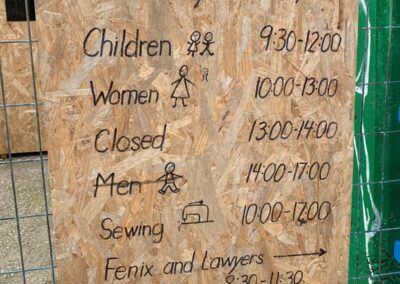 Children 9:30-12:00
Women 10:00-13:00
Closed 13:00-14:00
Men 14:00-17:00
Sewing 10:00-17:00
Fenix and Lawyers
9:30-11:30